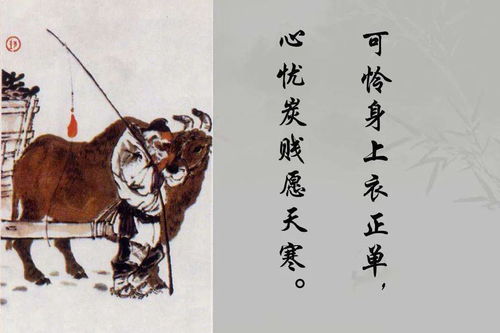 可怜身上衣正单，
心忧炭贱愿天寒。